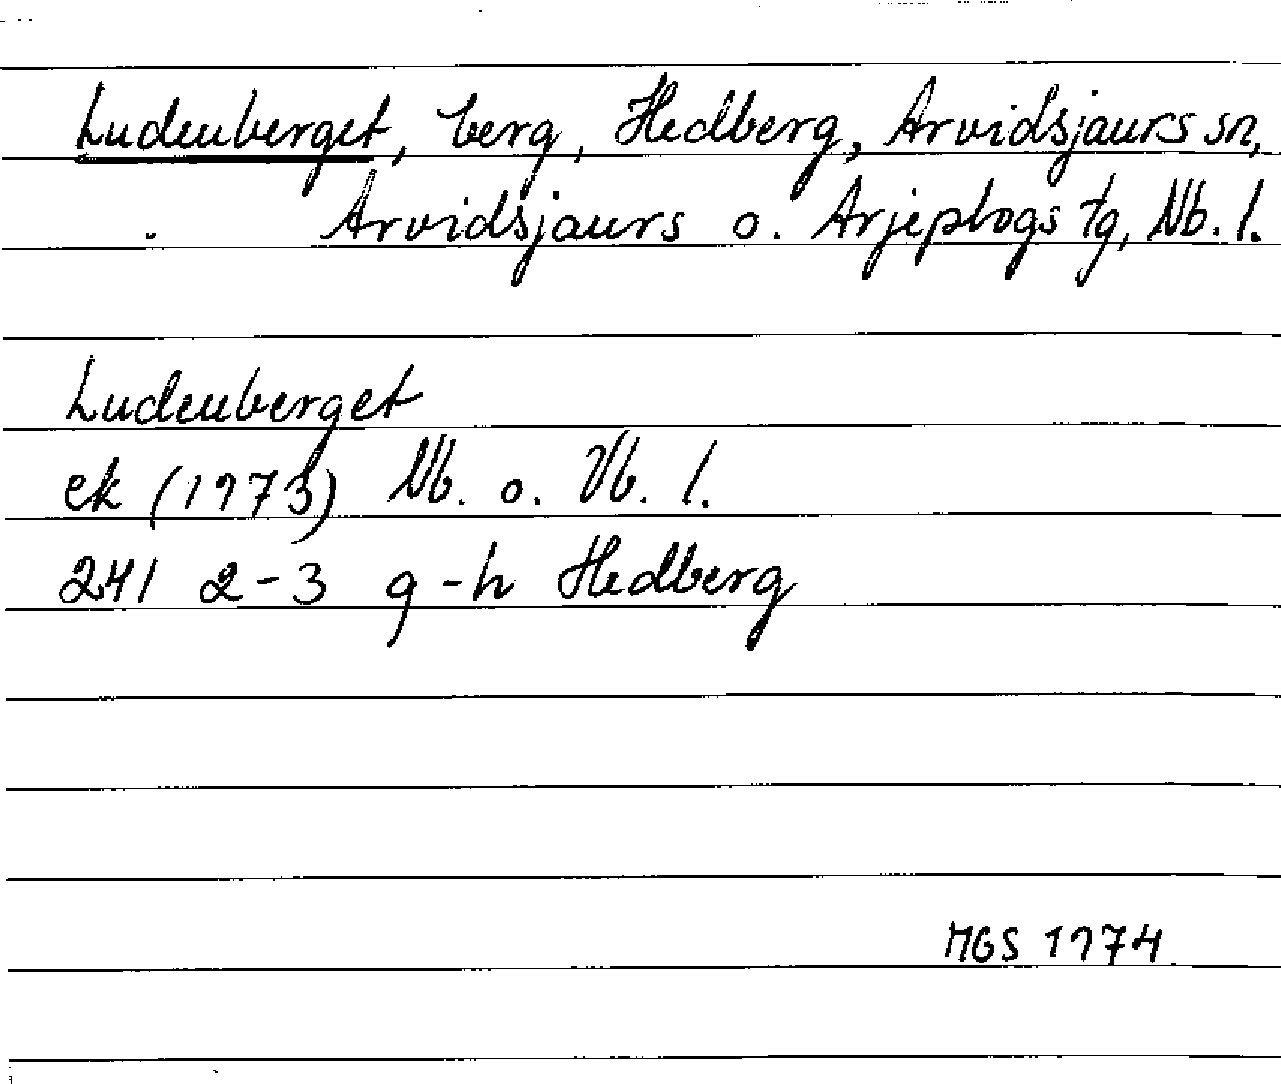 Ludenberget, berg, Hedberg, Arvidsjaurs sn,
Arvidsjaurs o. Arjeplogs tg, Nb. l.
Ludenberget
ek (1973) Nb. o. Vb. l.
241 2-3 g-h Hedberg
MGS 1974